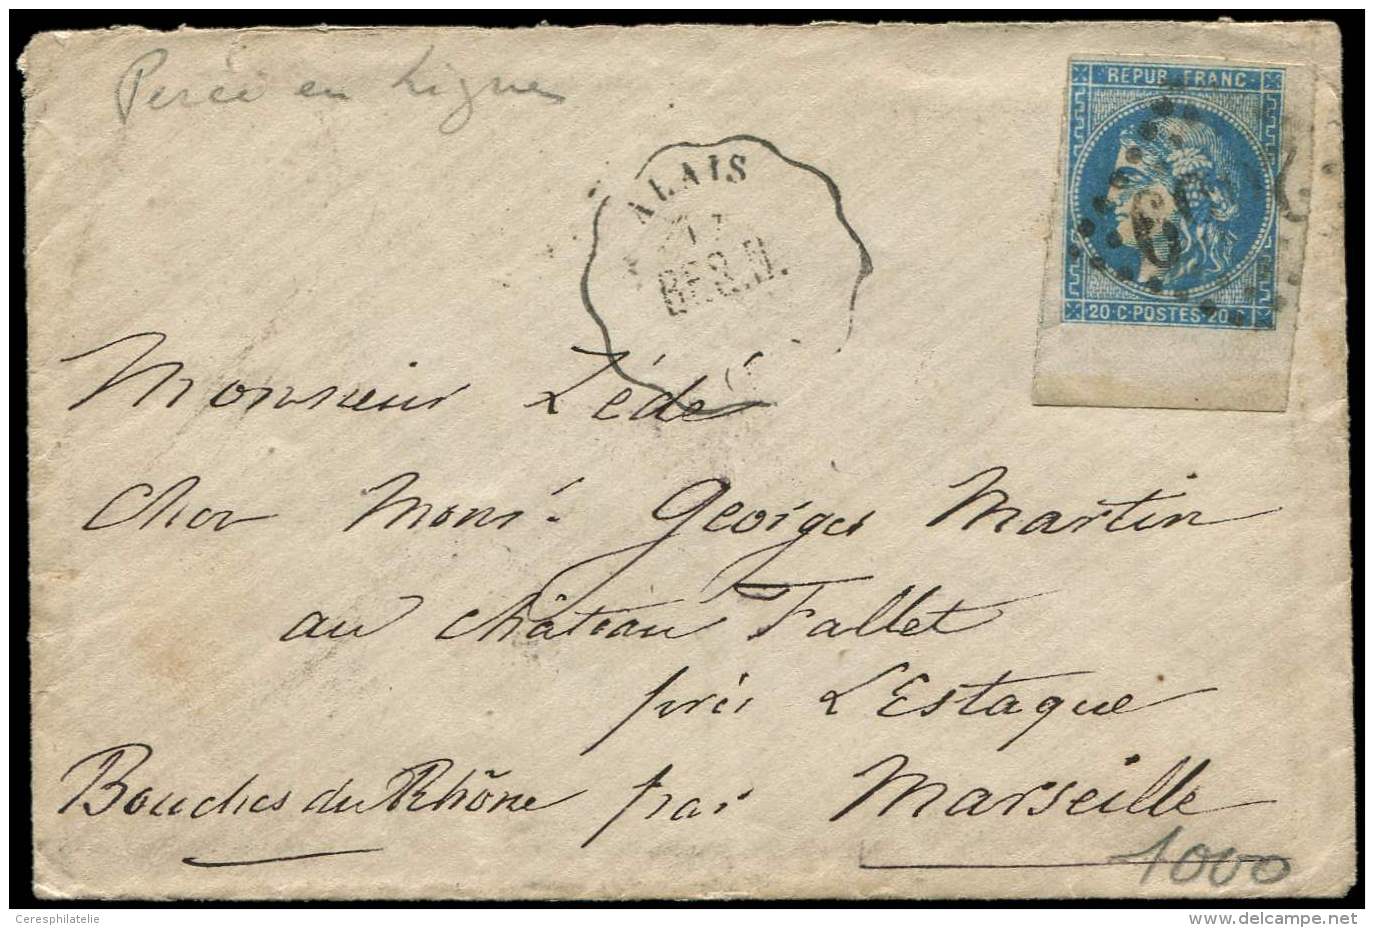 Percé en Lignes
REPUB. FRANC.
ALAIS
17
BES.N.
20·C·POSTES·20·C
Monsieur Lédé
Chez Monsr. Georges Martin
au Château Fallet
près L'Estaque
Bouches du Rhône par Marseille
1000
Ceresphilatelie
www.delcampe.net